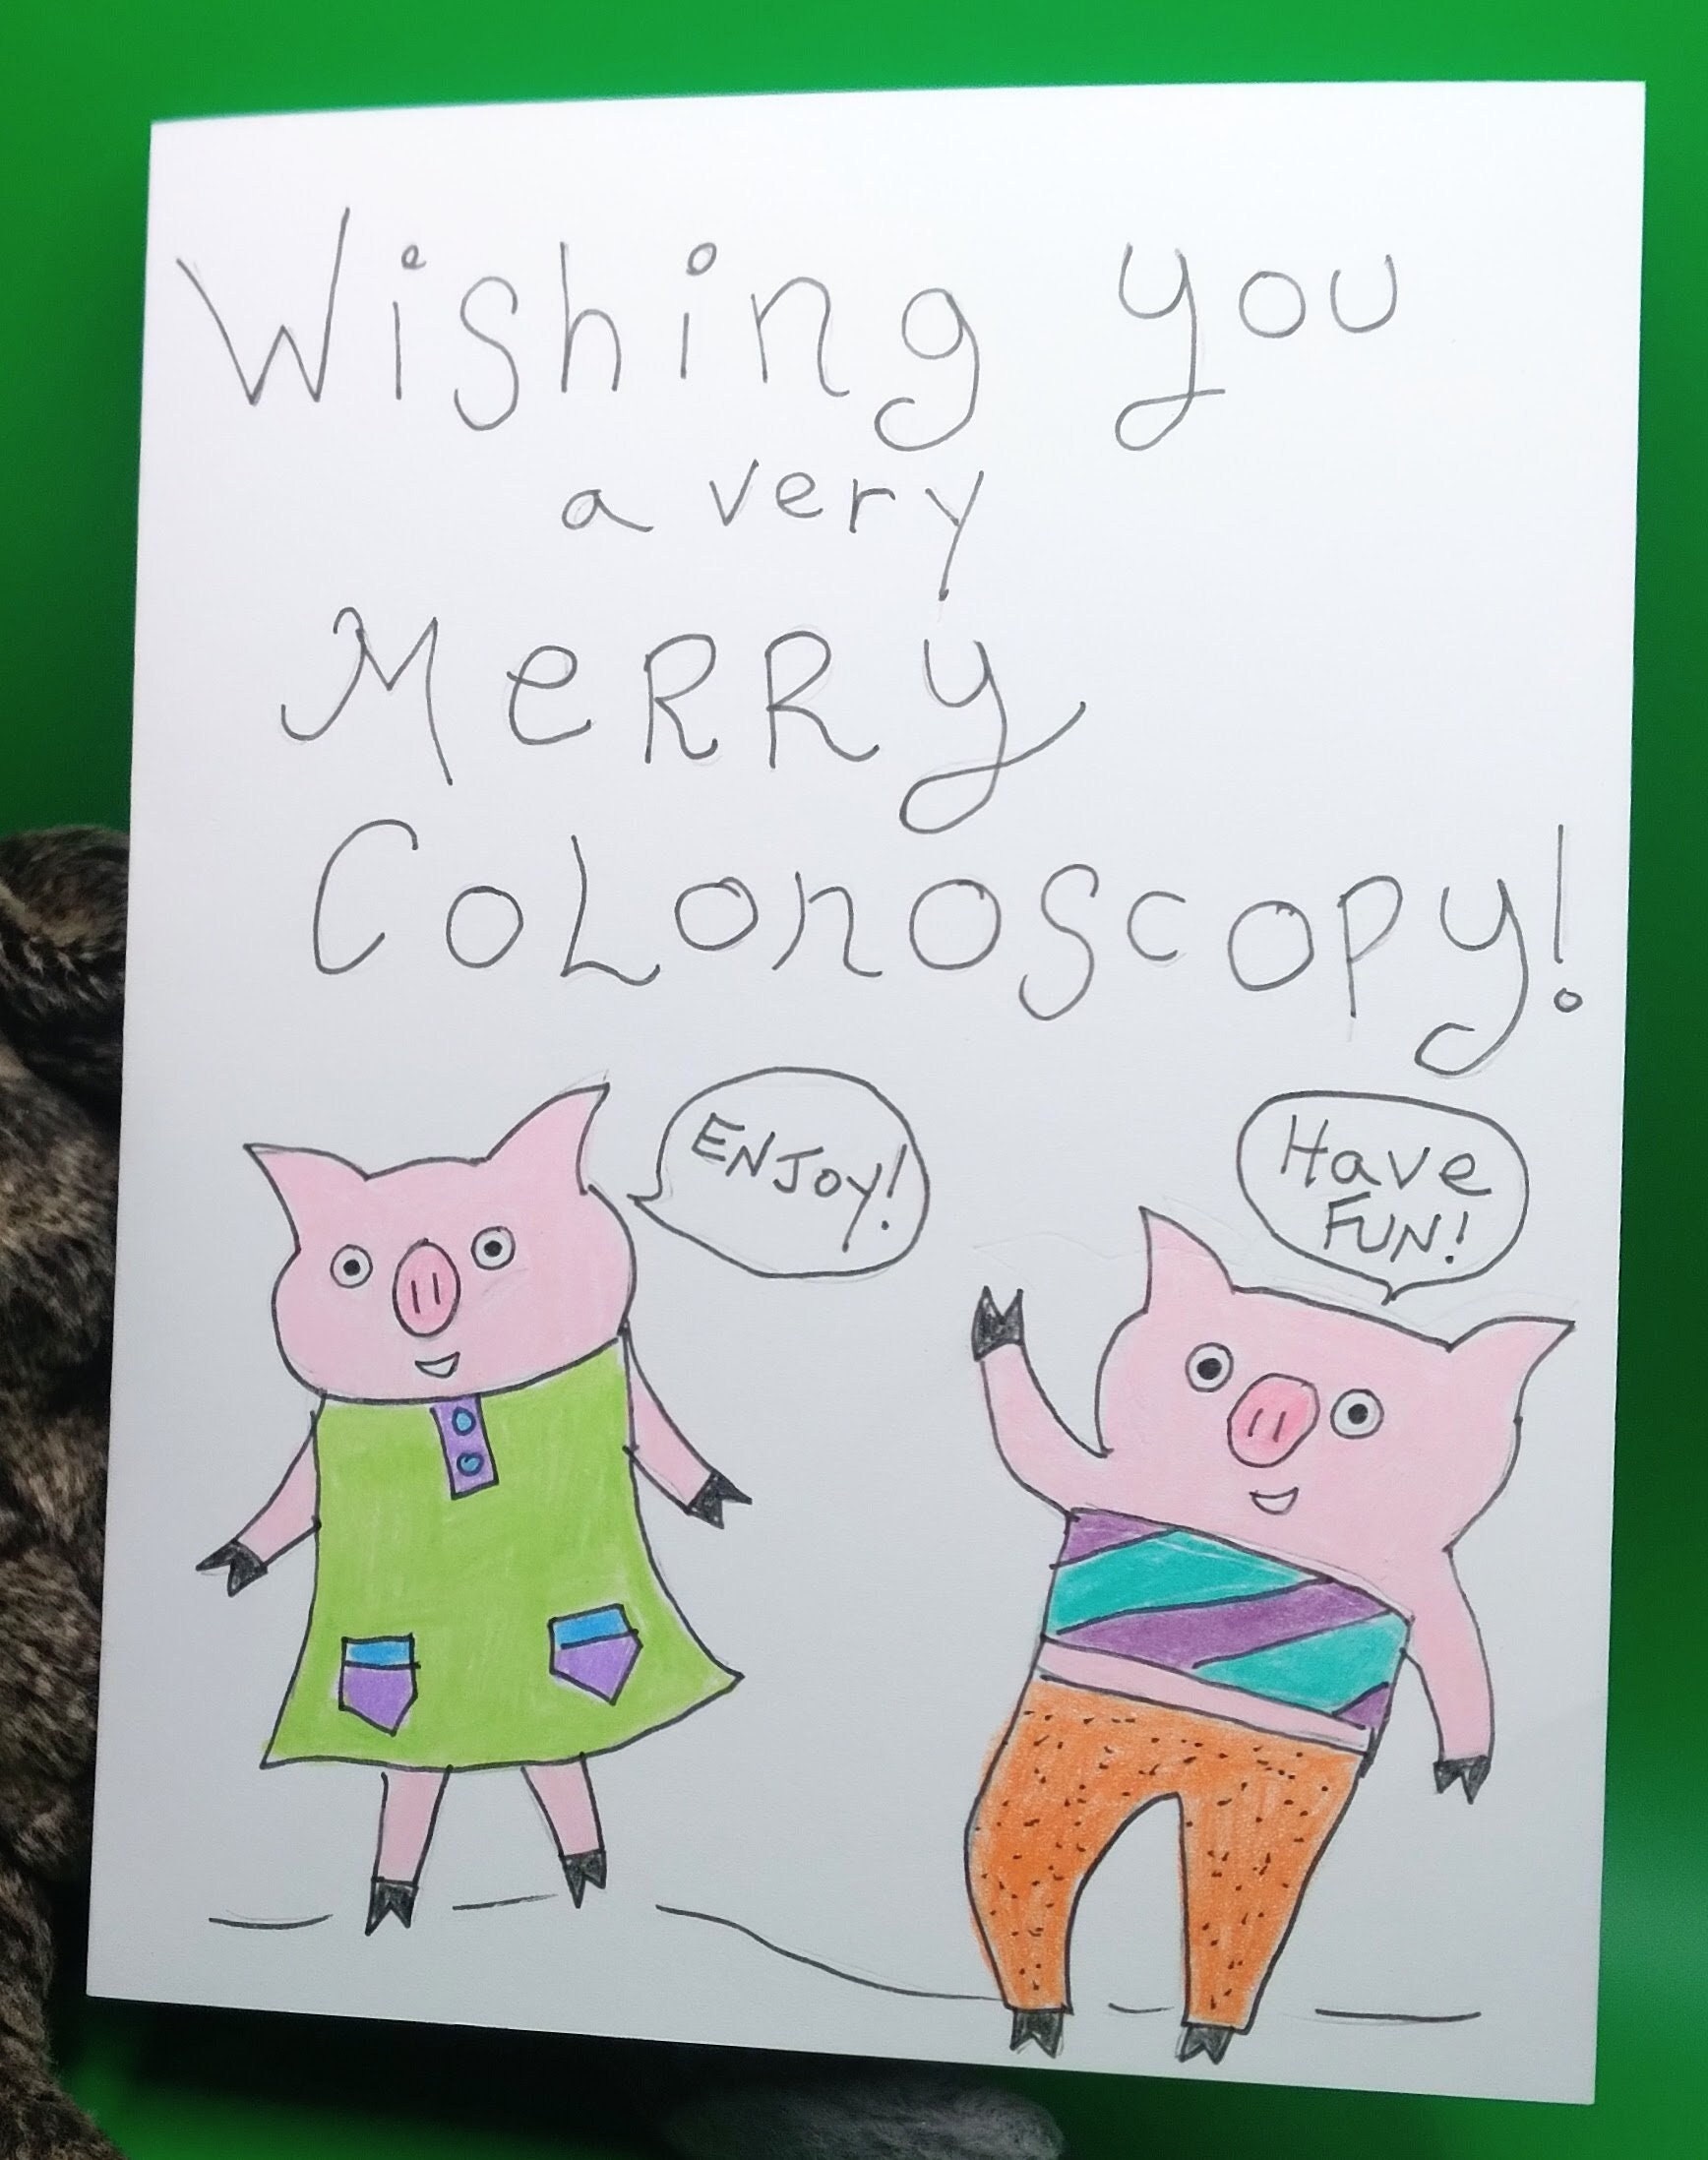 Wishing you
a very
MeRRy
CoLonoscopy!
ENJoy!
Have
FUN!